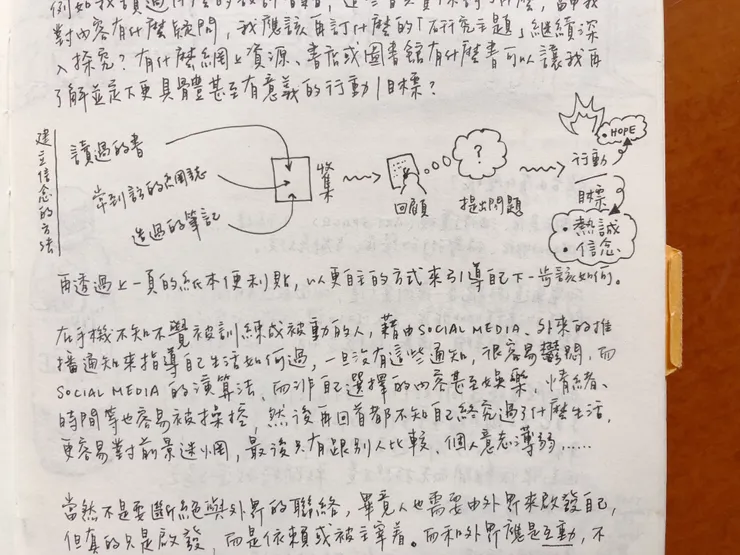 對內容有什麼疑問，我應該再訂什麼的「研究主題」繼續深
入探究？有什麼網上資源、書店或圖書館有什麼書可以讓我再
了解並定下更具體甚至有意義的行動/目標？
建立信念的方法
讀過的書
常到訪的網誌
造過的筆記
收集
回顧
?
提出問題
行動
目標
• HOPE
• 熱誠
• 信念
再透過上一頁的紙本便利貼，以更自主的方式來引導自己下一步該如何。
在手機不知不覺被訓練成被動的人，藉由SOCIAL MEDIA、外來的推
播通知來指導自己生活如何過，一旦沒有這些通知，很容易鬱悶，而
SOCIAL MEDIA的演算法，而非自己選擇的內容甚至娛樂，情緒、
時間等也容易被操控，然後再回首都不知自己終究過了什麼生活，
更容易對前景迷惘，最後只有跟別人比較、個人意志薄弱……
當然不是要斷絕與外界的聯絡，畢竟人也需要由外界來啟發自己，
但真的只是啟發，而是依賴或被主宰着。而和外界應是互動，不